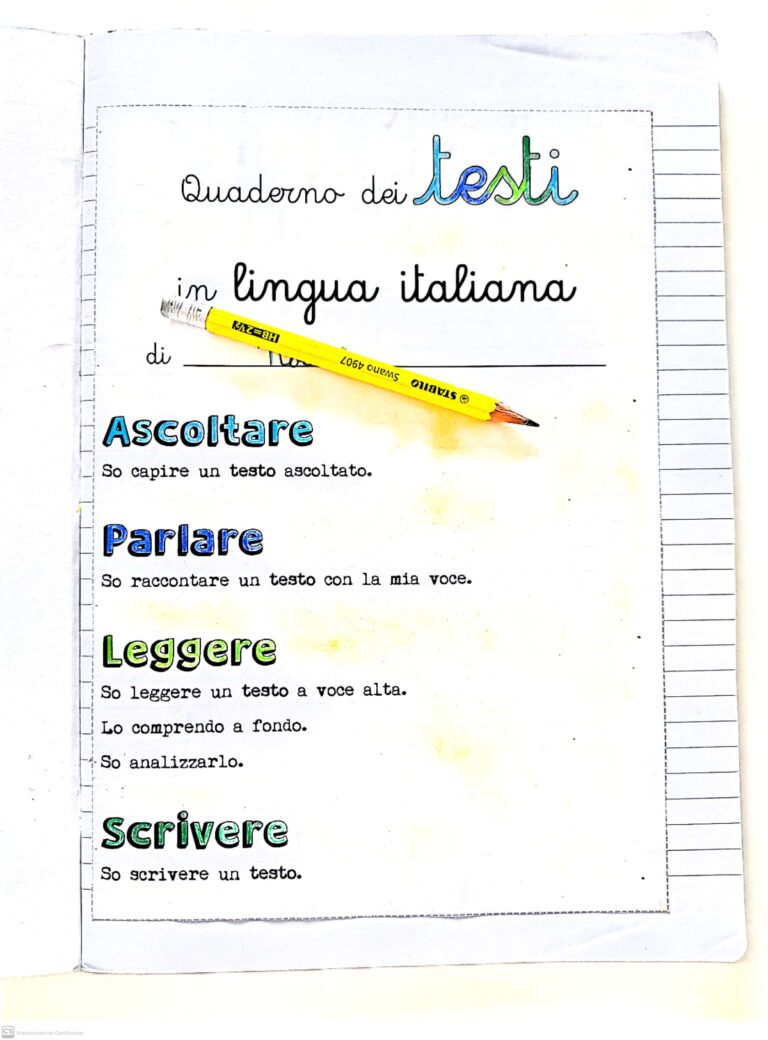 Quaderno dei testi
in lingua italiana
di
HB=2½ Swano 4907 STABILO
Ascoltare
So capire un testo ascoltato.
Parlare
So raccontare un testo con la mia voce.
Leggere
So leggere un testo a voce alta.
Lo comprendo a fondo.
So analizzarlo.
Scrivere
So scrivere un testo.
CS Scansionato con CamScanner